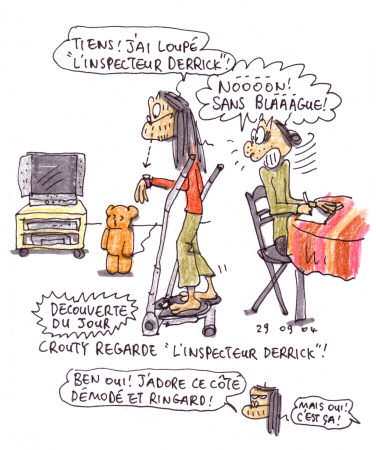 TIENS! J'AI LOUPÉ
"L'INSPECTEUR DERRICK"!
NÔÔÔÔN!
SANS BLÂÂÂGUE!
DÉCOUVERTE
DU JOUR
29 09 04
CROUTY REGARDE "L'INSPECTEUR DERRICK"!
BEN OUI! J'ADORE CE CÔTÉ
DÉMODÉ ET RINGARD!
MAIS OUI!
C'EST ÇA!